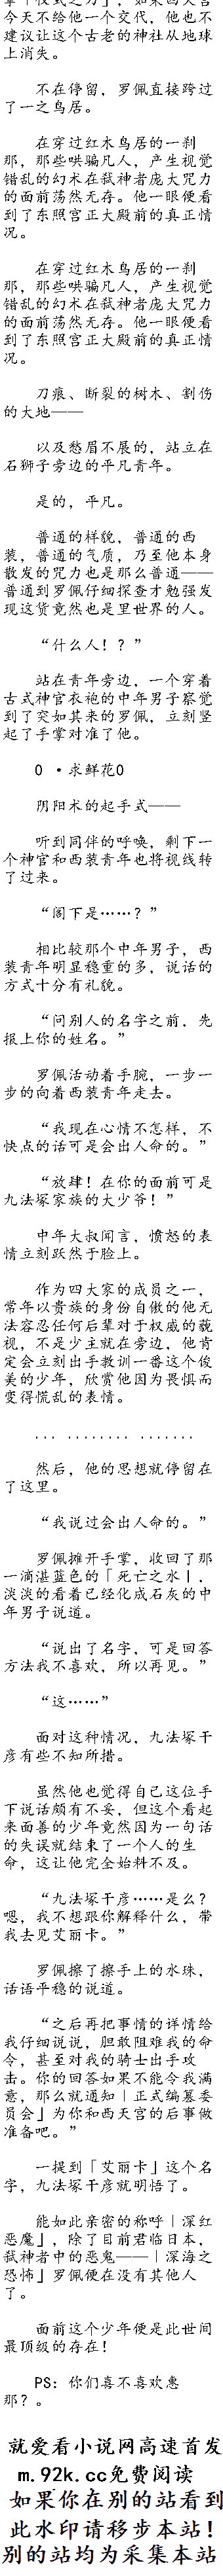 今天不给他一个交代，他也不
建议让这个古老的神社从地球
上消失。
不在停留，罗佩直接跨过
了一之鸟居。
在穿过红木鸟居的一刹
那，那些哄骗凡人，产生视觉
错乱的幻术在弑神者庞大咒力
的面前荡然无存。他一眼便看
到了东照宫正大殿前的真正情
况。
在穿过红木鸟居的一刹
那，那些哄骗凡人，产生视觉
错乱的幻术在弑神者庞大咒力
的面前荡然无存。他一眼便看
到了东照宫正大殿前的真正情
况。
刀痕、断裂的树木、割伤
的大地——
以及愁眉不展的，站立在
石狮子旁边的平凡青年。
是的，平凡。
普通的样貌，普通的西
装，普通的气质，乃至他本身
散发的咒力也是那么普通——
普通到罗佩仔细探查才勉强发
现这货竟然也是里世界的人。
“什么人！？”
站在青年旁边，一个穿着
古式神官衣袍的中年男子察觉
到了突如其来的罗佩，立刻竖
起了手掌对准了他。
0 ·求鲜花0
阴阳术的起手式——
听到同伴的呼唤，剩下一
个神官和西装青年也将视线转
了过来。
“阁下是……？”
相比较那个中年男子，西
装青年明显稳重的多，说话的
方式十分有礼貌。
“问别人的名字之前，先
报上你的姓名。”
罗佩活动着手腕，一步一
步的向着西装青年走去。
“我现在心情不怎样，不
快点的话可是会出人命的。”
“放肆！在你的面前可是
九法塚家族的大少爷！”
中年大叔闻言，愤怒的表
情立刻跃然于脸上。
作为四大家的成员之一，
常年以贵族的身份自傲的他无
法容忍任何后辈对于权威的藐
视，不是少主就在旁边，他肯
定会立刻出手教训一番这个俊
美的少年，欣赏他因为畏惧而
变得慌乱的表情。
... ........ .......
然后，他的思想就停留在
了这里。
“我说过会出人命的。”
罗佩摊开手掌，收回了那
一滴湛蓝色的「死亡之水丨，
淡淡的看着已经化成石灰的中
年男子说道。
“说出了名字，可是回答
方法我不喜欢，所以再见。”
“这……”
面对这种情况，九法塚干
彦有些不知所措。
虽然他也觉得自己这位手
下说话颇有不妥，但这个看起
来面善的少年竟然因为一句话
的失误就结束了一个人的生
命，这让他完全始料不及。
“九法塚干彦……是么？
嗯，我不想跟你解释什么，带
我去见艾丽卡。”
罗佩擦了擦手上的水珠，
话语平稳的说道。
“之后再把事情的详情给
我仔细说说，胆敢阻难我的命
令，甚至对我的骑士出手攻
击。你的回答如果不能令我满
意，那么就通知丨正式编纂委
员会」为你和西天宫的后事做
准备吧。”
一提到「艾丽卡」这个名
字，九法塚干彦就明悟了。
能如此亲密的称呼丨深红
恶魔」，除了目前君临日本，
弑神者中的恶鬼——丨深海之
恐怖」罗佩便在没有其他人
了。
面前这个少年便是此世间
最顶级的存在！
PS：你们喜不喜欢惠
那？。
就爱看小说网高速首发
m.92k.cc免费阅读
如果你在别的站看到
此水印请移步本站！
别的站均为采集本站